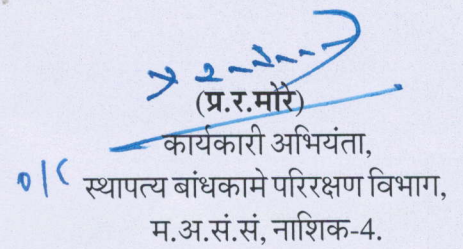 (प्र.र.मोरे)
कार्यकारी अभियंता,
o/c
स्थापत्य बांधकामे परिरक्षण विभाग,
म.अ.सं.सं, नाशिक-4.